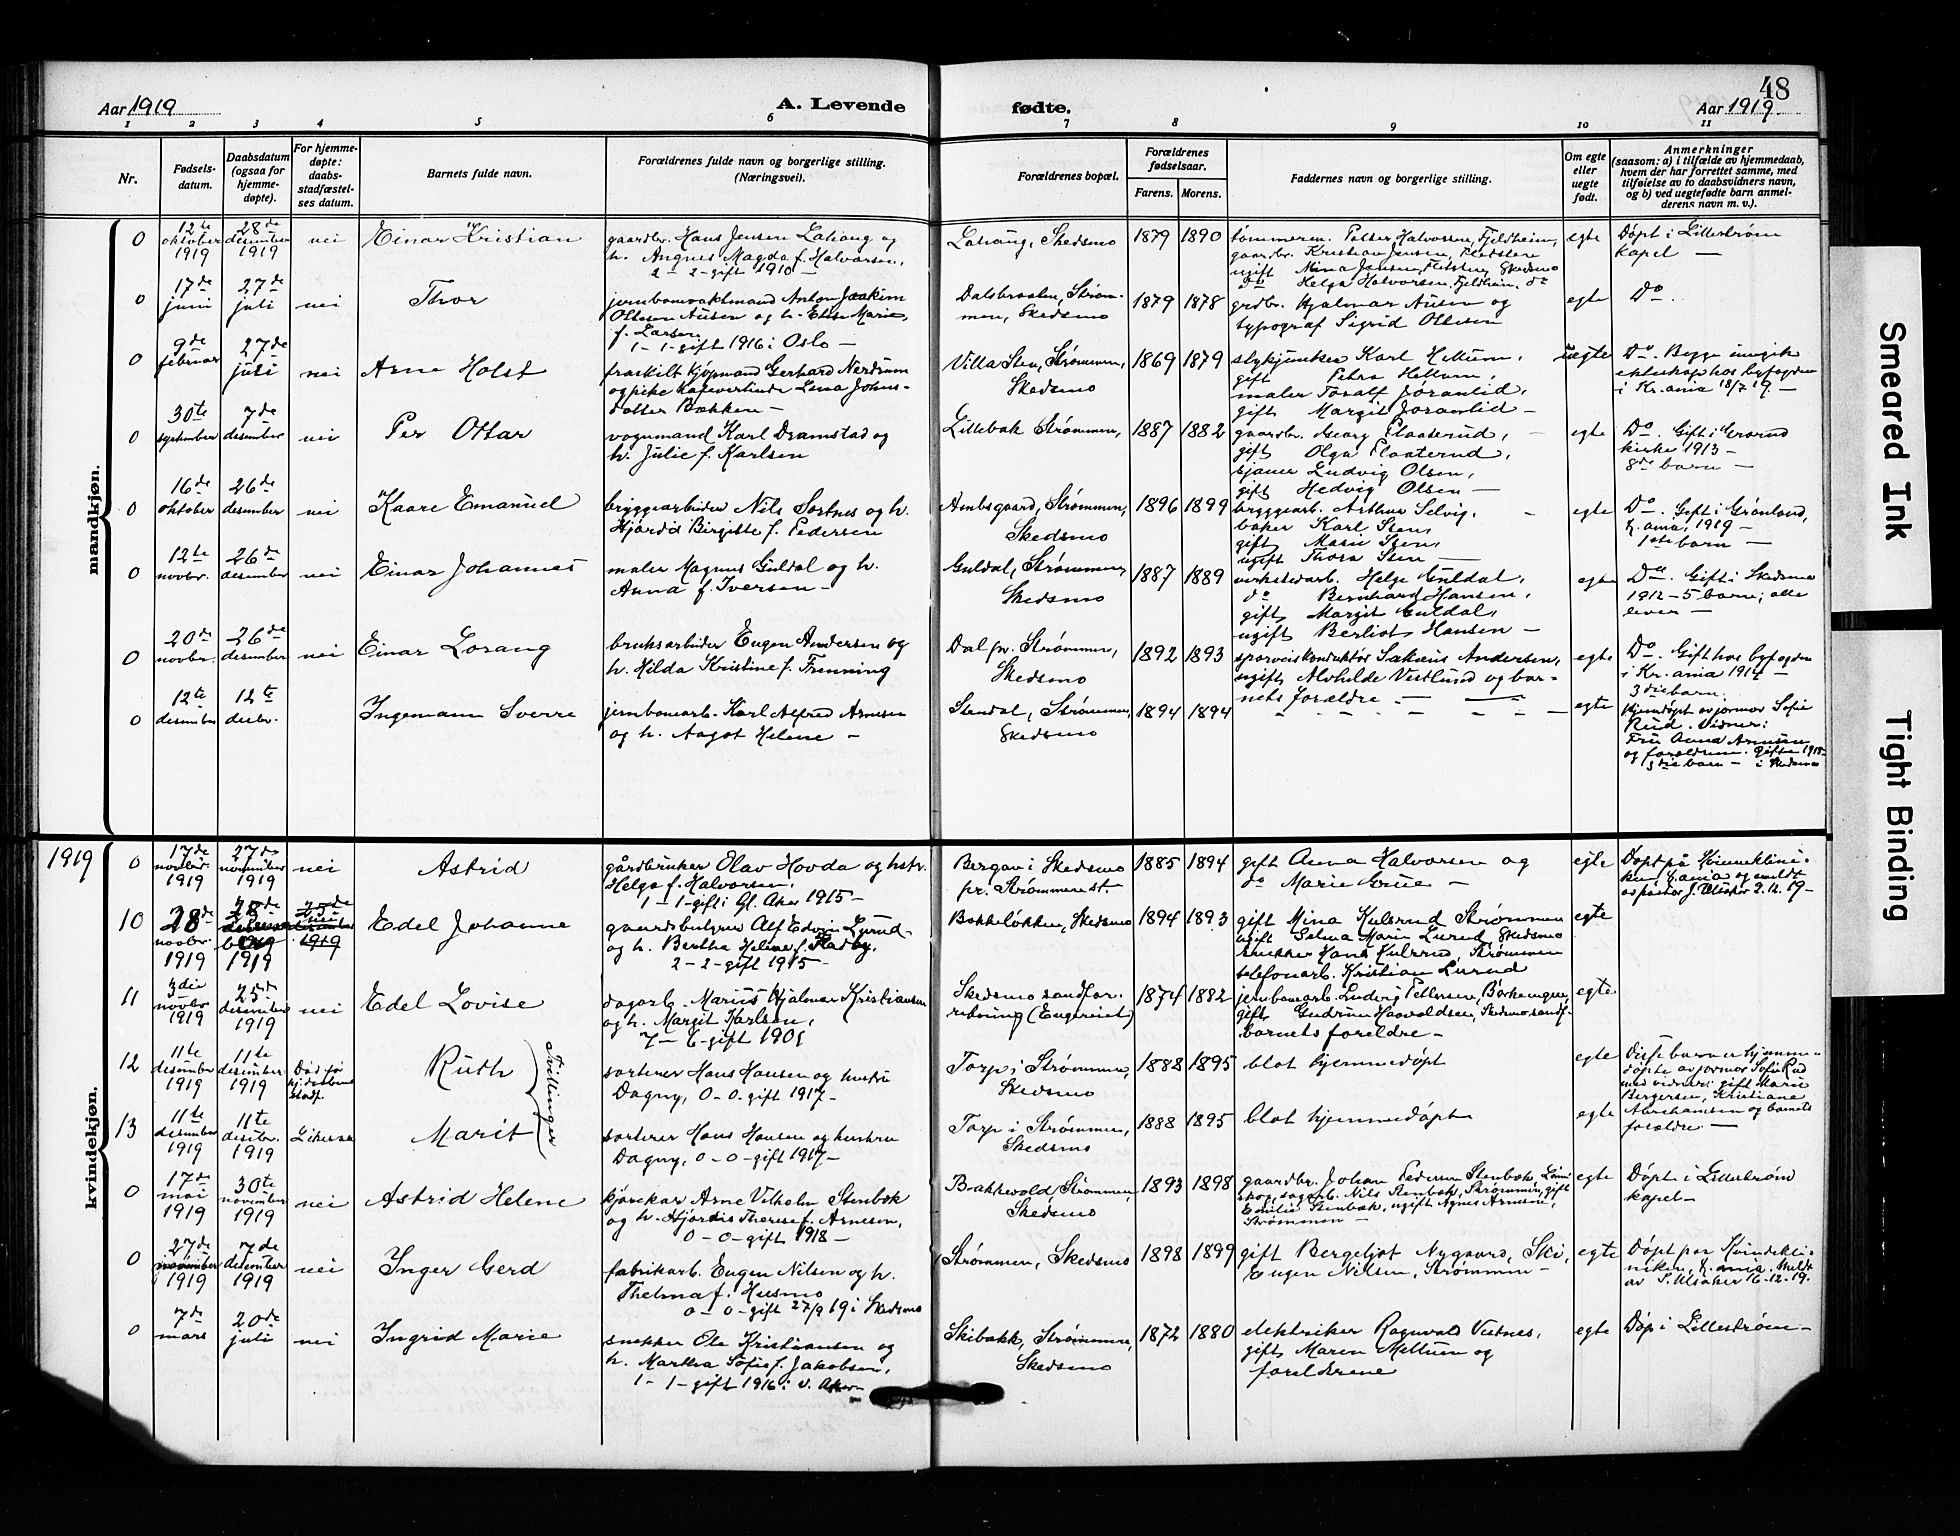 48
Aar 1919
A. Levende
fødte.
Aar 1919
1 2 3 4 5 6 7 8 9 10 11
Nr.
Fødsels-
datum.
Daabsdatum
(ogsaa for
hjemme-
døpte).
For hjemme-
døpte:
daabs-
stadfæstel-
ses datum.
Barnets fulde navn.
Forældrenes fulde navn og borgerlige stilling.
(Næringsvei).
Forældrenes bopæl.
Forældrenes
fødselsaar.
Farens. Morens.
Faddernes navn og borgerlige stilling.
Om egte
eller
uegte
født.
Anmerkninger
(saasom: a) i tilfælde av hjemmedaab,
hvem der har forrettet samme, med
tilføielse av to daabsvidners navn,
og b) ved uegtefødte barn anmel-
derens navn m. v.).
mandkjøn.
0
12te
oktober
1919
28de
desember
1919
nei
Einar Kristian
gaardbr. Hans Jensen Lahaug og
h. Angnes Magda f. Halvorsen,
2 - 2 - gift 1910 -
Lahaug, Skedsmo
1879
1890
tømmerm. Petter Halvorsen, Fjeldheim,
gaardbr. Kristian Jensen, Fletsten
ugift Mina Jensen, Fletsten, Skedsmo
do Helga Halvorsen, Fjeldheim, do
egte
Døpt i Lillestrøm
kapel -
0
17de
juni
27de
juli
nei
Thor
jernbanevaktmand Anton Joakim
Ottesen Ausen og h. Elise Marie,
f. Larsen
1 - 1 - gift 1916 i Oslo -
Dalsbraaten, Strøm-
men, Skedsmo
1879
1878
grdbr. Hjalmar Ausen og
typograf Sigrid Ottesen
egte
Do.
0
9de
februar
27de
juli
nei
Arne Holst
fraskilt kjøpmand Gerhard Nerdrum
og pike kafevertinde Lena Johns-
datter Bakken -
Villa Sten, Strømmen,
Skedsmo
1869
1879
stykjunker Karl Hellum,
gift Petra Hellum,
maler Toralf Jørantlid,
gift Margit Jørantlid -
uegte
Do. Begge inngik
ekteskap hos byfogden
i Kr.ania 18/7 19. -
0
30te
september
7de
desember
nei
Per Ottar
vognmand Karl Dramstad og
h. Julie f. Karlsen
Lillebak Strømmen,
1887
1882
gaardbr. Georg Flaaterud,
gift Olga Flaaterud,
sjauer Ludvig Olsen,
gift Hedvig Olsen -
egte
Do. Gift i Grorud
kirke 1913 -
8de barn -
0
16de
oktober
26de
desember
nei
Kaare Emanuel
bryggearbeider Nils Sørtnes og h.
Hjørdis Birgitte f. Pedersen
Ambsgaard, Strømmen,
Skedsmo
1896
1899
bryggearb. Arthur Selvig,
baker Karl Sten,
gift Marie Sten,
ugift Thora Sten -
egte
Do. Gift i Grønland,
K.ania, 1919 -
1ste barn -
0
12te
novbr.
26de
desember
nei
Einar Johannes
maler Magnus Guldal og h.
Anna f. Iversen -
Guldal, Strømmen,
Skedsmo
1887
1889
verkstedarb. Helge Guldal,
do Bernhard Hansen,
gift Margit Guldal,
ugift Berliot Hansen -
egte
Do. Gift i Skedsmo
1912 - 5 barn; alle
lever -
0
20de
novbr.
26de
desember
nei
Einar Lorang
bruksarbeider Eugen Andersen og
h. Hilda Kristine f. Frenning
Dal pr. Strømmen,
Skedsmo
1892
1893
sporveiskonduktør Sakæus Andersen,
ugift Alvhilde Vestlund og bar-
nets foræld­re -
egte
Do. Gift hos byfogden
i Kr.ania 1914 -
3die barn.
0
12te
desember
12te
desbr.
Ingemann Sverre
jernbanearb. Karl Alfred Arnesen
og h. Aagot Helene -
Stendal, Strømmen,
Skedsmo
1894
1894
- - - - - - -
egte
Hjemdøpt av jormor Sofie
Rud. Vidner:
Fru Anna Arnesen
og forældrene. Gifte 1915
3die barn - i Skedsmo
kvindekjøn.
1919
0
17de
novbr.
1919
27de
november
1919
nei
Astrid
gårdbruker Olav Hovda og hstr.
Helga f. Halvorsen,
1 - 1 - gift i Gl. Aker 1915 -
Bergan i Skedsmo
pr. Strømmen st.
1885
1894
gift Anna Halvorsen og
do Marie Grue -
egte
Døpt på Kvinneklini-
ken K.ania og meldt
av pastor J. Ulsaker 2.12.19 -
10
28de
novbr.
1919
28de
1919
25de
1919
Edel Johanne
gaardsbestyrer Alf Edvin Lurud
og h. Bertha Helene f. Skadby,
2 - 2 - gift 1915 -
Bakkeløkken, Skedsmo
1894
1893
gift Mina Kulsrud Strømmen
ugift Selma Marie Lurud, Skedsmo
snekker Hans Kulsrud, Strømmen
telefonarb. Kristian Lurud
egte
11
3die
novbr.
1919
25de
desember
1919
nei
Edel Lovise
dagarb. Marius Hjalmar Kristiansen
og h. Margit Karlsen,
7 - 6 - gift 1901
Skedsmo sandfor-
retning (Engereiet)
1874
1882
jernbanearb. Ludvig Pettersen, Børkeengen,
gift Gudrun Haavaldsen, Skedsmo sandf.
barnets foreldre -
egte
12
11te
desember
1919
11te
desember
1919
Død før
stadf.
Ruth
Tvillinger
sorterer Hans Hansen og hustru
Dagny, 0 - 0 - gift 1917 -
Torp i Strømmen,
Skedsmo
1888
1895
blot hjemmedøpt
egte
Disse barn er hjemme-
døpte av jormor Sofie Rud
med vidner: gift Marie
Bergersen, Kristiane
Abrahamsen og barnets
forældre. -
13
11te
desember
1919
11te
desbr.
1919
Likesaa
Marit
sorterer Hans Hansen og hustru
Dagny, 0 - 0 - gift 1917 -
Torp i Strømmen,
Skedsmo
1888
1895
blot hjemmedøpt
egte
0
17de
mai
1919
30te
november
1919
nei
Astrid Helene
kjørekar Arne Vilhelm Stenbæk
og h. Hjørdis Therese f. Arnesen,
0 - 0 - gift 1918 -
Bakkevold, Strømmen,
Skedsmo
1893
1898
gaardbr. Johan Pedersen Stenbæk, Løren-
skog, sagarb. Nils Stenbæk, Strømmen, gift
Emilie Stenbæk, ugift Agnes Arnesen,
Strømmen -
egte
Døpt i Lillestrøm
kapel -
0
27de
november
1919
7de
desember
1919
nei
Inger Gerd
fabrikarb. Eugen Nilsen og h.
Thelma f. Husmo
0 - 0 - gift 27/9 19 i Skedsmo
Strømmen, Skedsmo
1898
1899
gift Bergeljot Nygaard, Ski,
Eugen Nilsen, Strømmen -
egte
Døpt paa Kvindekli-
niken, K.ania. Meldt
av P. Ulsaker 16-12-19.
0
7de
mars
20de
juli
nei
Ingrid Marie
snekker Ole Kristiansen og
h. Martha Sofie f. Jakobsen,
1 - 1 - gift 1916 i v. Aker -
Skibakk, Strømmen,
Skedsmo
1872
1880
elektriker Ragnvald Vestnes,
gift Maren Mellum og
foreldrene
egte
Døp i Lillestrøm -
Smeared Ink
Tight Binding